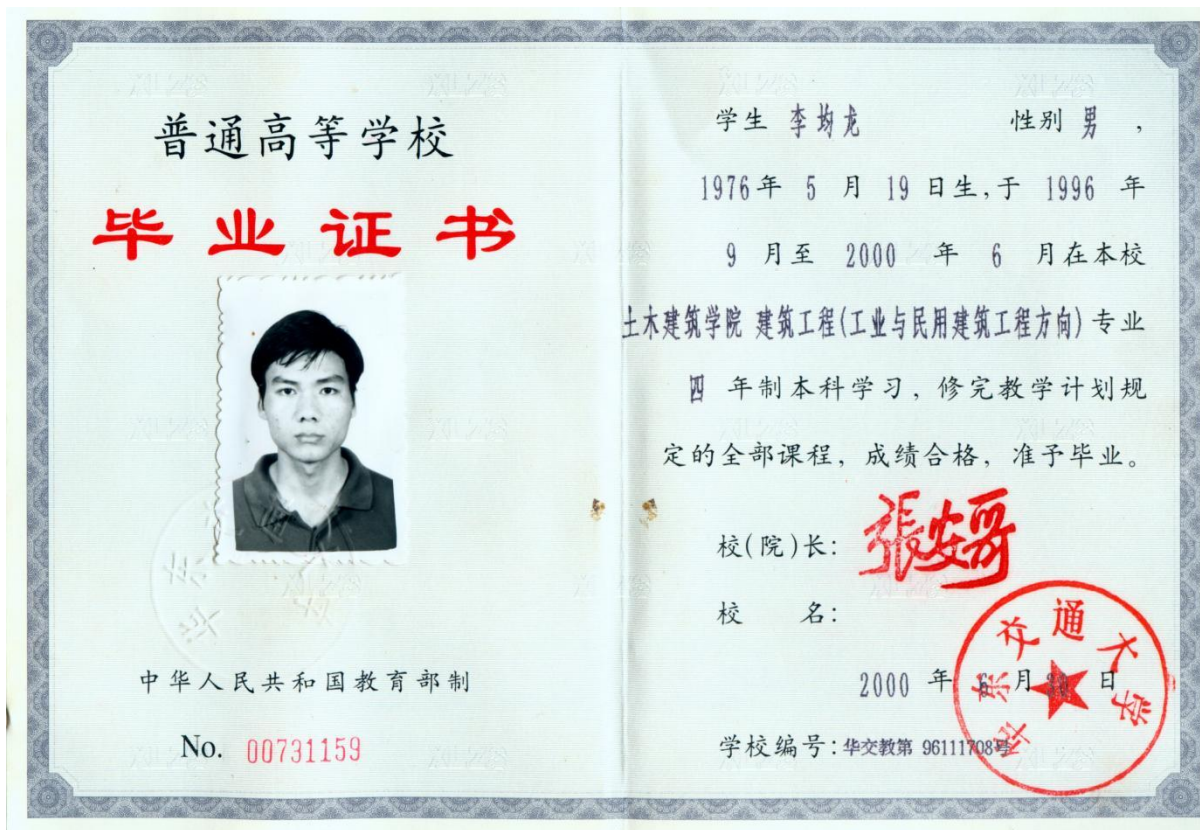 普通高等学校
毕业证书
中华人民共和国教育部制
No. 00731159
学生 李均龙 性别 男 ,
1976年 5 月 19 日生,于 1996 年
9 月至 2000 年 6 月在本校
土木建筑学院 建筑工程(工业与民用建筑工程方向)专业
四 年制本科学习，修完教学计划规
定的全部课程，成绩合格，准予毕业。
校(院)长: 張安哥
校 名:
华东交通大学
2000 年 6 月 日
学校编号:华交教第 96111708号